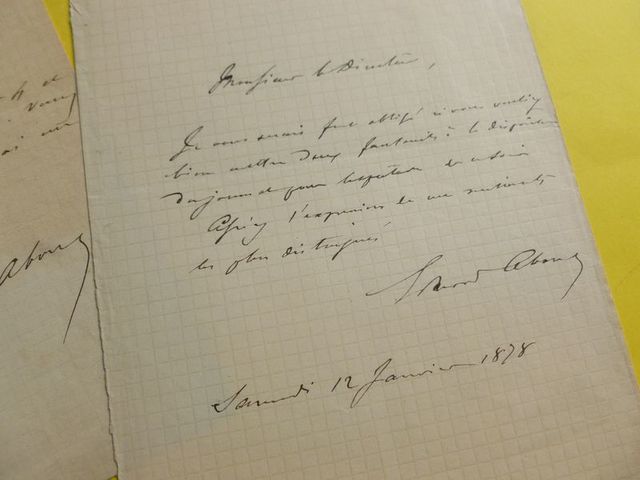 Monsieur le Directeur,
Je vous serais fort obligé si vous vouliez
bien mettre deux fauteuils à la disposition
du journal pour la représentation de ce soir
Agréez l'expression de mes sentiments
les plus distingués
Edmond About
Samedi 12 Janvier 1878
About